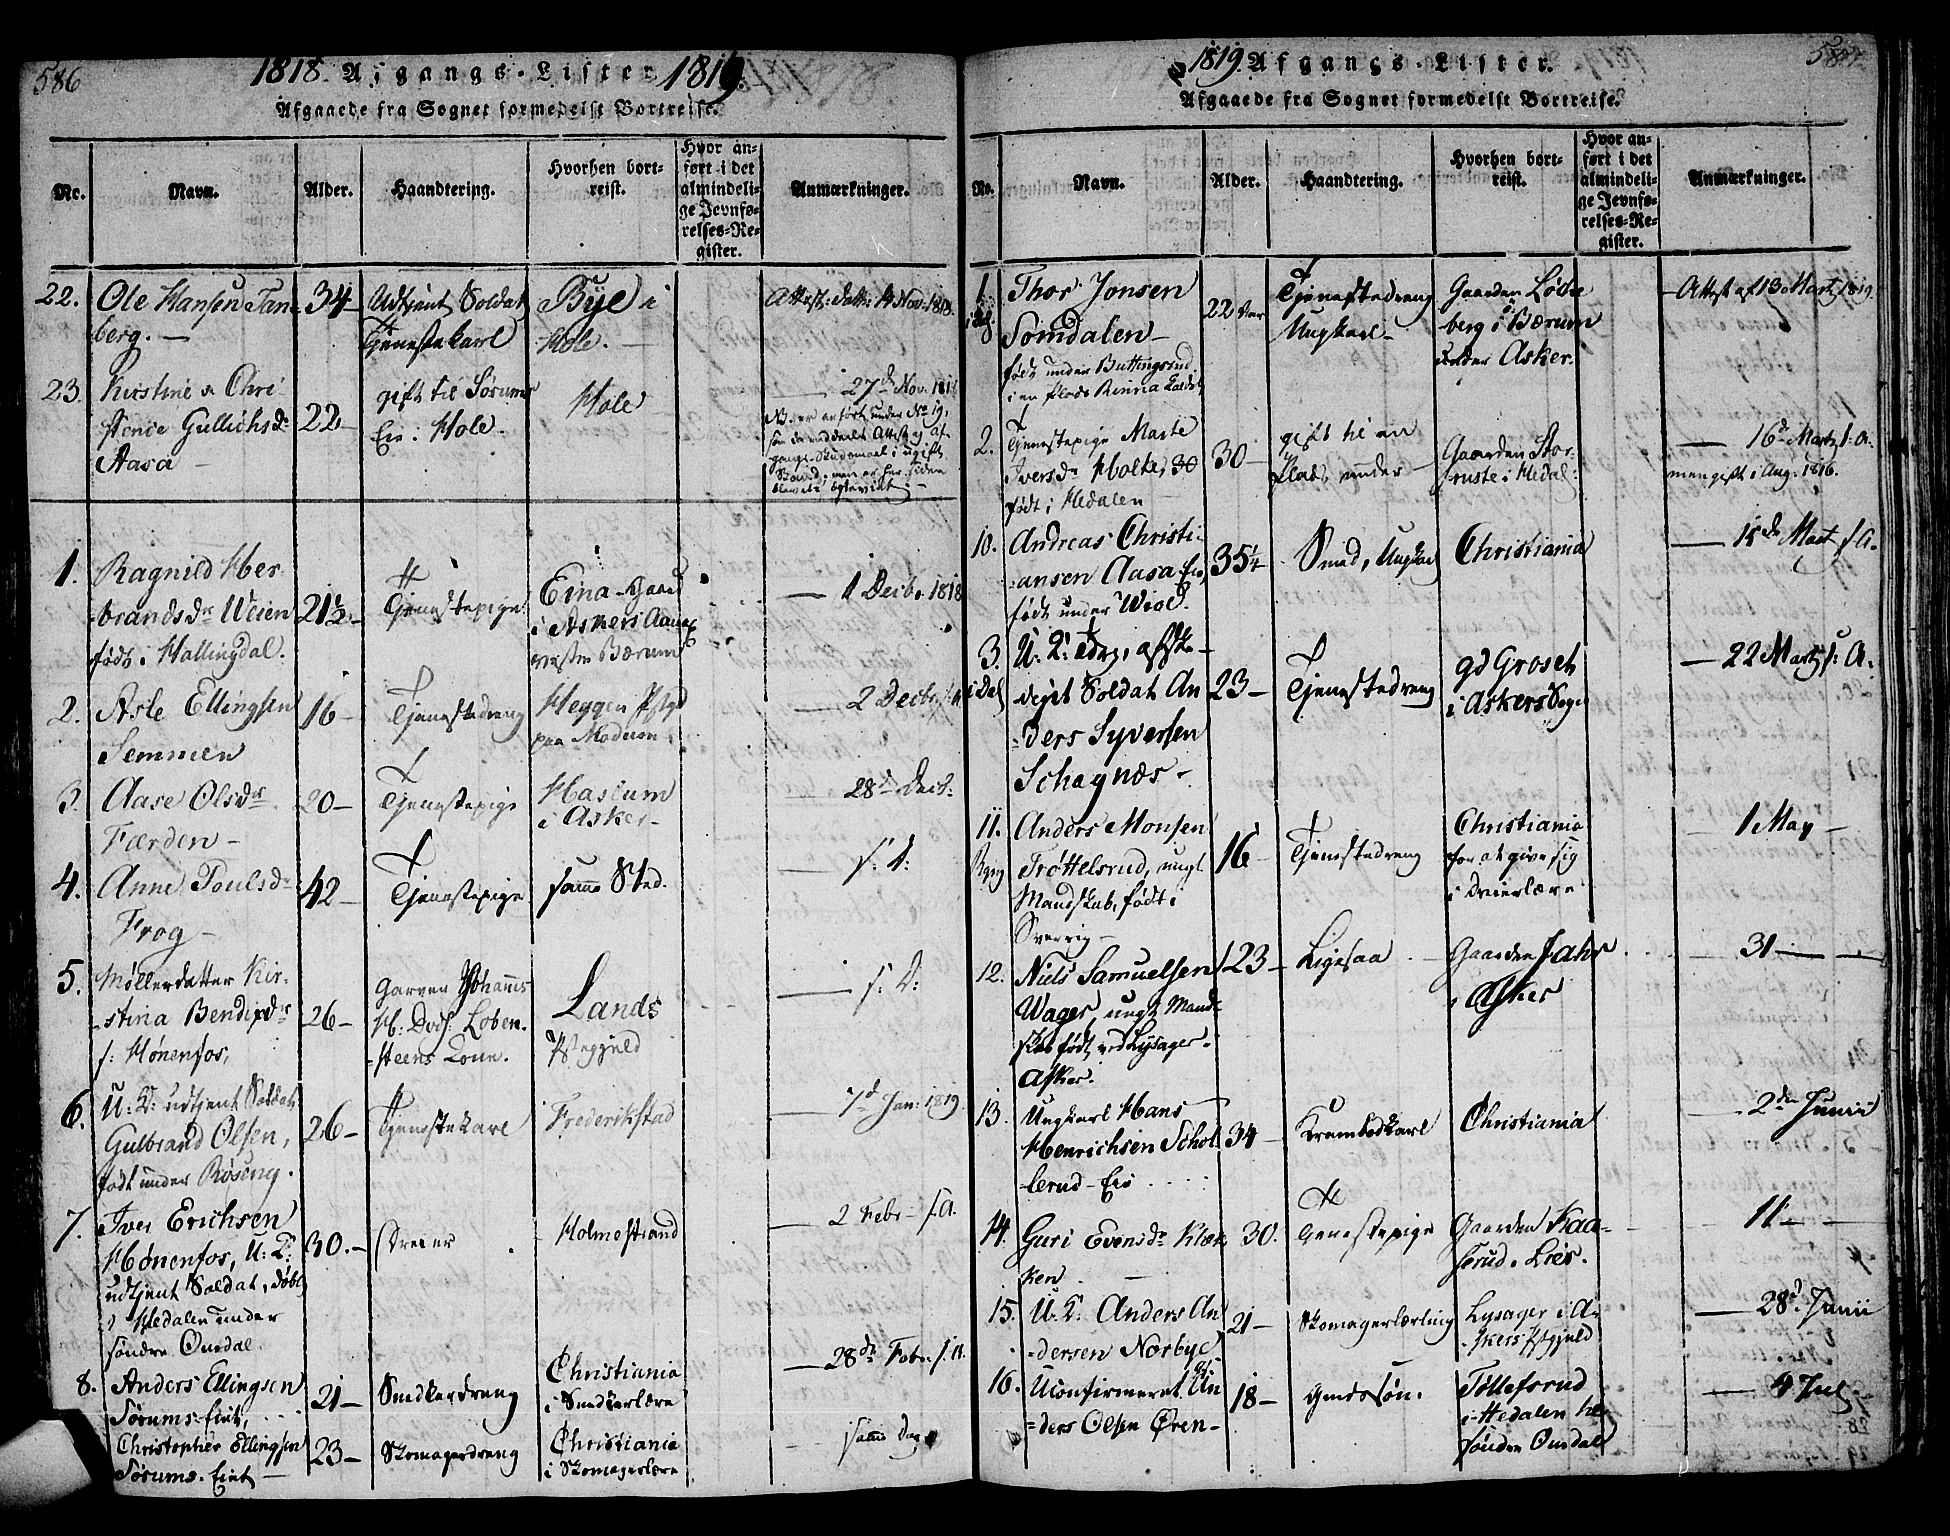 586
1818. Afgangs-Lister 1819.
Afgaaede fra Sognet formedelst Bortreise.
No.
Navn.
Alder.
Haandtering.
Hvorhen bort-
reist.
Hvor an-
ført i det
almindeli-
ge Jevnfø-
relses-Re-
gister.
Anmærkninger.
22. Ole Hansen Tan-
berg. —
34
Udtjent Soldat
Tjenestekarl
Bye i
Hole. —
Attest. dat: 4 Nov. 1818.
23. Kirstine Chri-
stence Gullichsdr
Aasa —
22
gift til
Eie i Hole.
Hole
— 27de Nov. 1818
1. Ragnild Her-
brandsdr Weien
født i Hallingdal.
21½
Tjenestepige
Eina Gaard
i Asker
Bærum
— 1 Decbr. 1818
2. Asle Ellingsen
Semmen
16 —
Tjenestedreng
Heggen Pstgd
paa Modum.
— 2 Decbr.
3. Aase Olsdr
Færden —
20 —
Tjenestepige
Haslum
i Asker —
— 28de Decb.
4. Anne Poulsdr
Frog —
42
Tjenestepige
samme Sted.
— s: D:
5. Møllerdatter Kir-
stina Bendixdr
f: Hønenfos,
26 —
Garver Johannes
Loben-
steens Kone.
Lands
Pstegjeld
— s: D:
6. U: K: udtjent Soldat
Gulbrand Olsen,
født under Røseng.
26 —
Tjenestekarl
Frederikstad
— 7d Jan: 1819.
7. Iver Erichsen
Hønenfos, U: K:
udtjent Soldat, døbt
i Hedalen under
søndre Ourdal.
30. —
Dreier
Holmestrand
— 2 Febr. s. A.
8. Anders Ellingsen
Sørums-Eiet,
21 —
Snedkerdreng
Christiania
i Snedkerlære
— 28de Febr. s. A.
Christopher Ellingsen
Sørums-Eiet —
23 —
Skomagerdreng
Christiania
i Skomagerlære
— samme Dag
1819. Afgangs-Lister.
Afgaaede fra Sognet formedelst Bortreise.
No.
Navn.
Alder.
Haandtering.
Hvorhen bort-
reist.
Hvor an-
ført i det
almindeli-
ge Jevnfø-
relses-Re-
gister.
Anmærkninger.
1. Thor Jonsen
Somdalen —
født under Buttingsrud
22 Aar
Tjenestedreng
Ungkarl —
Gaarden Løke-
berg i Bærum
under Asker.
— Attest af 13 Marts 1819.
2. Tjenestepige Marte
Iversdr Holte, 30
født i Hedalen —
30 —
gift til en
Plads under —
Gaarden Stor-
ruste i Hedal:
— 16d Marts s. A.
men gift i Aug. 1816.
10. Andreas Christi-
ansen Aasa Eie
født under Wiol.
35¼
Smed, Ungkarl
Christiania
— 15de Mart. s A.
3.
i Dal
U: K:
Soldat An-
ders Syversen
Schagnæs —
23 —
Tjenestedreng
gd Grosch
i Askers Sogn
— 22 Marts s: A.
11. Anders Monsen
Trøttelsrud, ungt
Mandskab, født i
Sverrig —
16 —
Tjenestedreng
Christiania
for at give sig
i Dreierlære
— 1 May —
12. Niels Samuelsen
Wager, ungt Mand-
skab født ved Lysager
Asker.
23 —
Ligesaa
Gaarden Jahr
i Asker
— 31 —
13. Ungkarl Hans
Henrichsen Schol-
lerud-Eie
34 —
Krambodkarl
Christiania
— 2den Junii
14. Guri Evensdr Klæk-
ken
30.
Tjenestepige
Gaarden Kaa-
serud i Lier.
— 11 —
15. U: K: Anders An-
dersen Norbye
21 —
Skomagerlærling
Lysager i A-
skers Pstgjeld
— 28d. Junii
16. Uconfirmeret An-
ders Olsen Øren —
18 —
Tøllefsrud
i Hedalen
søndre Ourdal
— 4 Jul.